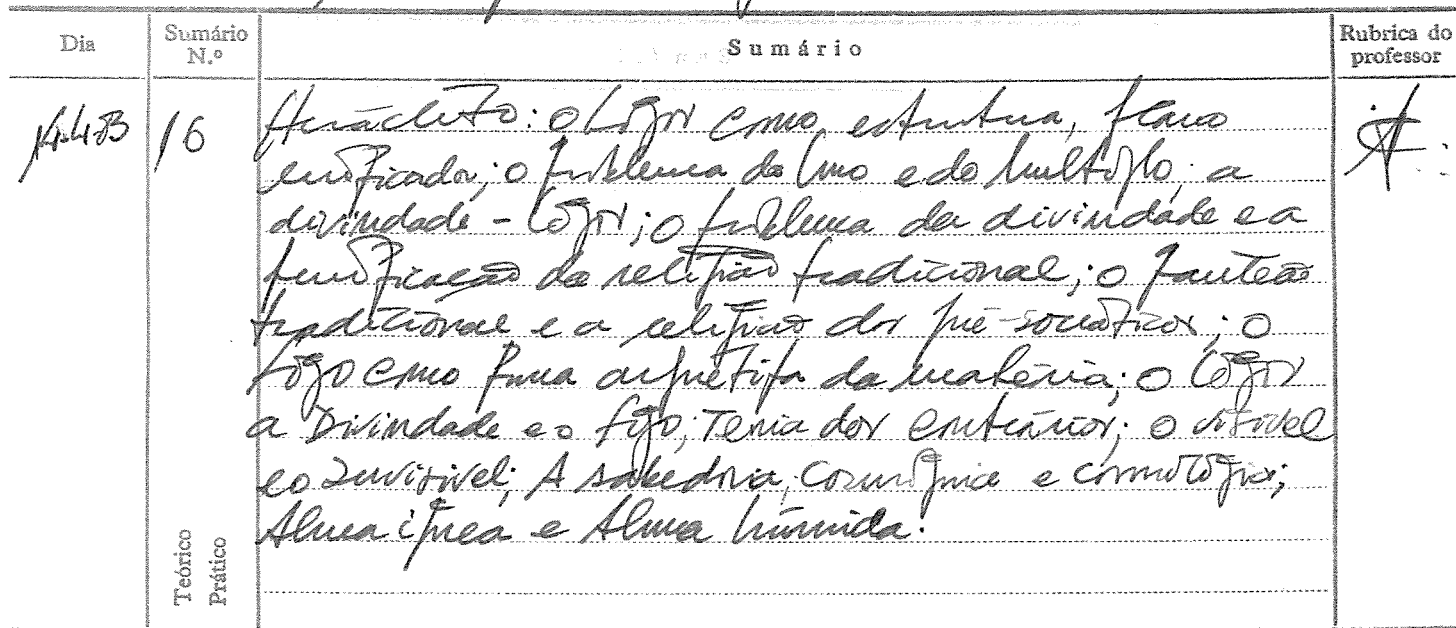 Dia
Sumário N.º
Sumário
Rubrica do professor
16
Heráclito: o Lógos como estrutura, plano
unificador; o problema do Uno e do Multiplo; a
divindade - Lógos; o problema da divindade e a
purificação da religião tradicional; o panteão
tradicional e a religião dos pré-socráticos; o
fogo como forma arquétipa da matéria; o Lógos
a Divindade e o fogo; Teoria dos Contrários; o visível
e o Invisível; A sabedoria, Cosmogonia e cosmologia;
Alma ígnea e Alma húmida.
Teórico
Prático